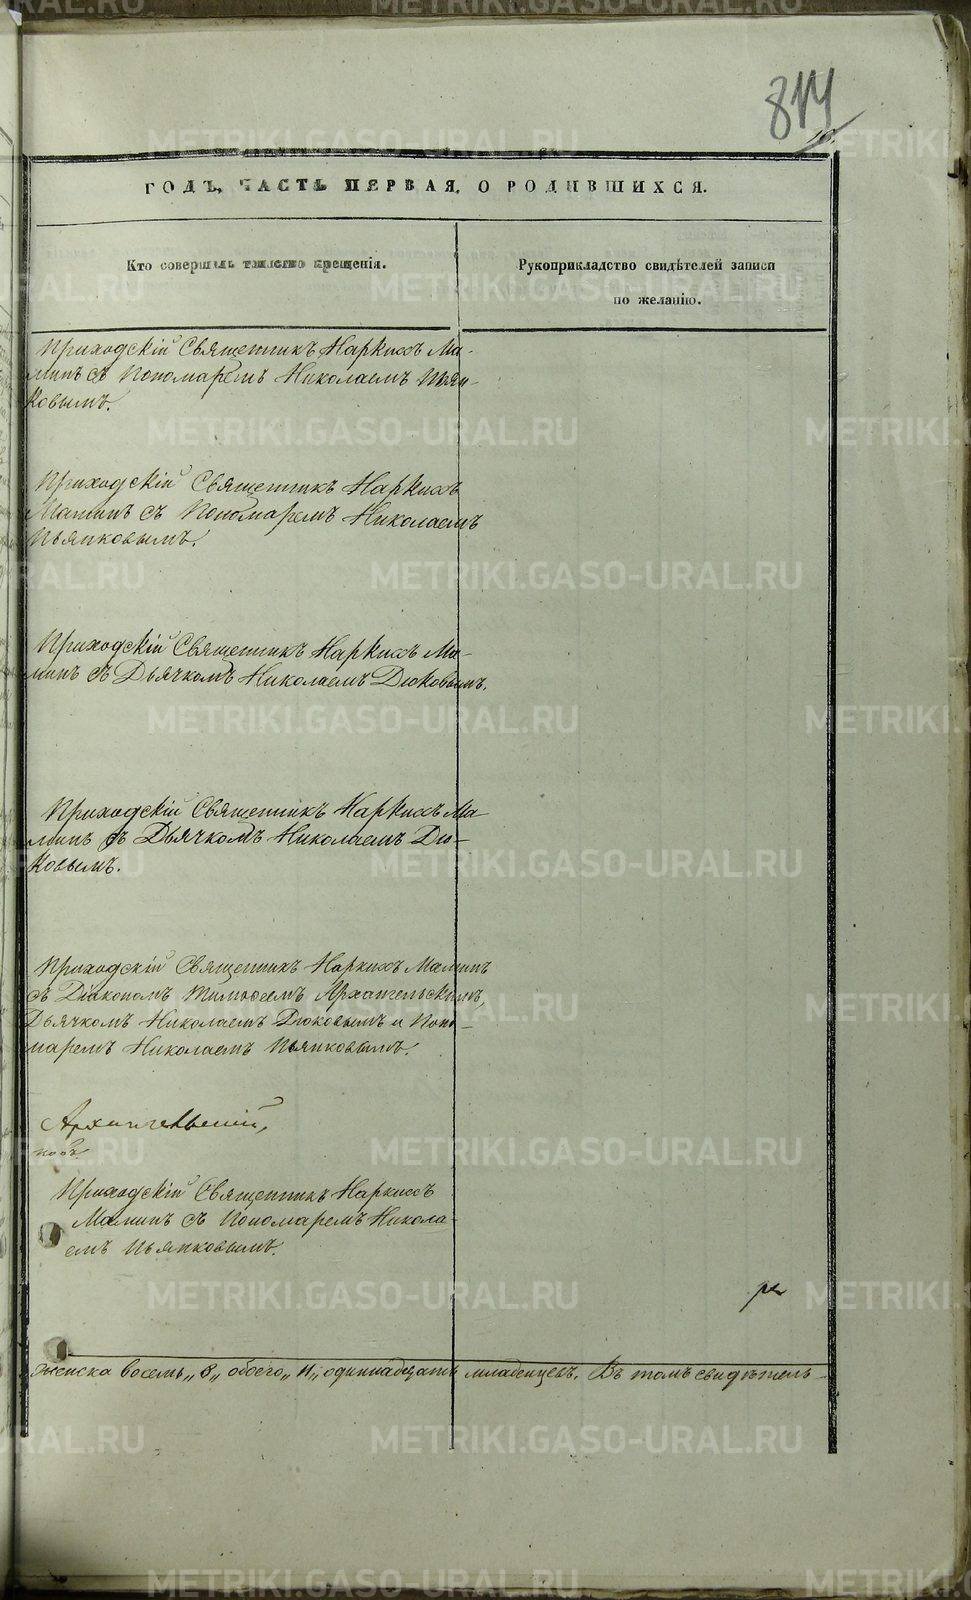 814
ГОДЪ, ЧАСТЬ ПЕРВАЯ, О РОДИВШИХСЯ.
Кто совершалъ таинство крещенія.
Рукоприкладство свидѣтелей записи
по желанію.
Приходскій Священникъ Наркисъ Ма-
минъ съ Пономаремъ Николаемъ Пьян-
ковымъ.
Приходскій Священникъ Наркисъ
Маминъ съ Пономаремъ Николаемъ
Пьянковымъ.
Приходскій Священникъ Наркисъ Ма-
минъ съ Дьячкомъ Николаемъ Дюковымъ.
Приходскій Священникъ Наркисъ Ма
минъ съ Дьячкомъ Николаемъ Дю-
ковымъ.
Приходскій Священникъ Наркисъ Маминъ
съ Діакономъ Тимоѳеемъ Архангельскимъ,
Дьячкомъ Николаемъ Дюковымъ и Поно-
маремъ Николаемъ Пьянковымъ.
Архангельскій,
ковъ
Приходскій Священникъ Наркисъ
Маминъ съ Пономаремъ Никола-
емъ Пьянковымъ.
женска восемь „8„ обоего „11„ одиннадцать младенцевъ. Въ томъ свидѣтель-
METRIKI.GASO-URAL.RU